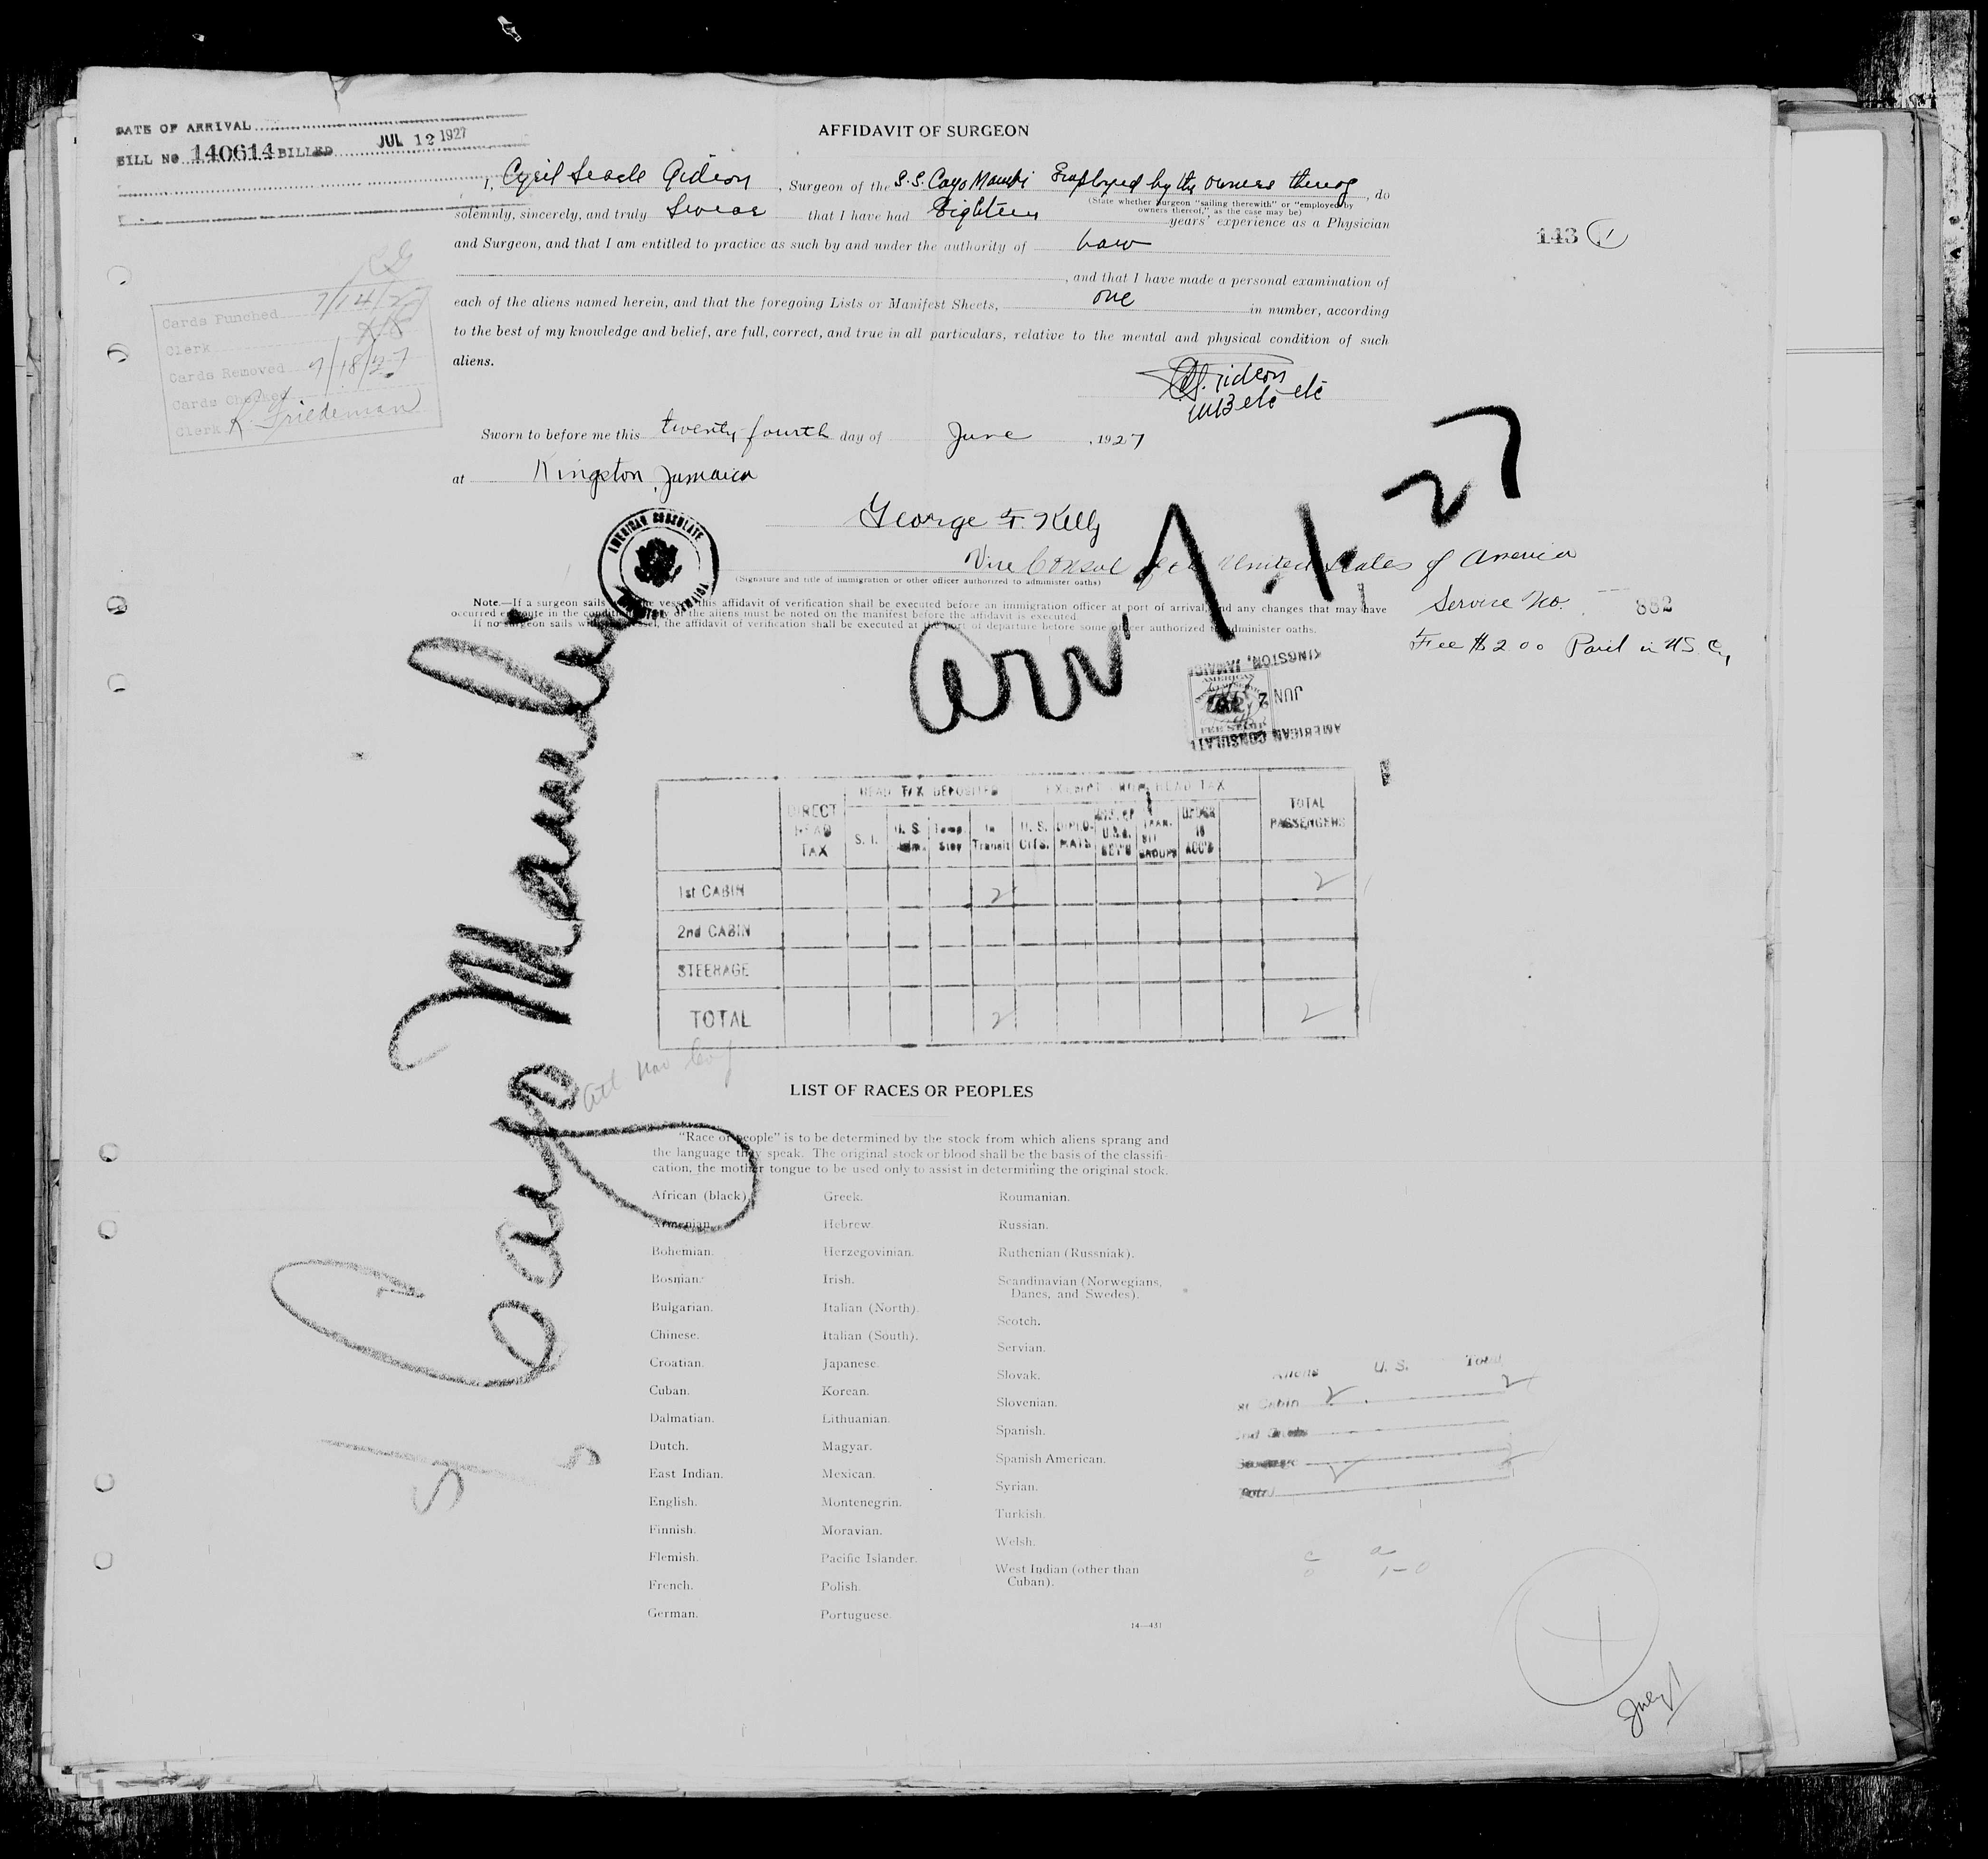 DATE OF ARRIVAL
BILL No 140614 BILLED JUL 12 1927
AFFIDAVIT OF SURGEON
I, Cyril Gideon, Surgeon of the S.S. Cayo Mambi Employed by the owners thereof, do
(State whether surgeon "sailing therewith" or "employed by
owners thereof," as the case may be)
solemnly, sincerely, and truly Swear that I have had Eighteen years' experience as a Physician
and Surgeon, and that I am entitled to practice as such by and under the authority of Law
143 1
, and that I have made a personal examination of
each of the aliens named herein, and that the foregoing Lists or Manifest Sheets, one in number, according
to the best of my knowledge and belief, are full, correct, and true in all particulars, relative to the mental and physical condition of such
aliens.
Cards Punched 7/14/27
Clerk
Cards Removed 7/18/27
Cards Checked
Clerk R. Friedeman
Gideon
MB etc etc
Sworn to before me this twenty fourth day of June, 1927
at Kingston, Jamaica
George F. Kelly
Vice Consul of the United States of America
(Signature and title of immigration or other officer authorized to administer oaths)
AMERICAN CONSULATE
Note.—If a surgeon sails vessel this affidavit of verification shall be executed before an immigration officer at port of arrival, and any changes that may have
occurred en route in the condition of the aliens must be noted on the manifest before the affidavit is executed.
If no surgeon sails with vessel, the affidavit of verification shall be executed at the port of departure before some officer authorized to administer oaths.
Service No. 882
Fee $2 00 Paid in U.S. Cy
arr 7.1.27
KINGSTON, JAMAICA
AMERICAN
FEE STAMP
JUN 2
AMERICAN CONSULATE
SS Cayo Mambi
HEAD TAX DEPOSITED EXEMPT FROM HEAD TAX
DIRECT HEAD TAX S. I. U. S. Adm. Temp. Stay In Transit U. S. CITS. DIPLO- MATS U.S.G. TRAN- SIT GROUPS TOTAL PASSENGERS
1st CABIN 2 2
2nd CABIN
STEERAGE
TOTAL 2 2
LIST OF RACES OR PEOPLES
"Race or people" is to be determined by the stock from which aliens sprang and
the language they speak. The original stock or blood shall be the basis of the classifi-
cation, the mother tongue to be used only to assist in determining the original stock.
African (black).
Armenian.
Bohemian.
Bosnian.
Bulgarian.
Chinese.
Croatian.
Cuban.
Dalmatian.
Dutch.
East Indian.
English.
Finnish.
Flemish.
French.
German.
Greek.
Hebrew.
Herzegovinian.
Irish.
Italian (North).
Italian (South).
Japanese.
Korean.
Lithuanian.
Magyar.
Mexican.
Montenegrin.
Moravian.
Pacific Islander.
Polish.
Portuguese.
Roumanian.
Russian.
Ruthenian (Russniak).
Scandinavian (Norwegians,
Danes, and Swedes).
Scotch.
Servian.
Slovak.
Slovenian.
Spanish.
Spanish American.
Syrian.
Turkish.
Welsh.
West Indian (other than
Cuban).
14—431
Aliens U. S. Total
Cabin 2 2
Total
July 1